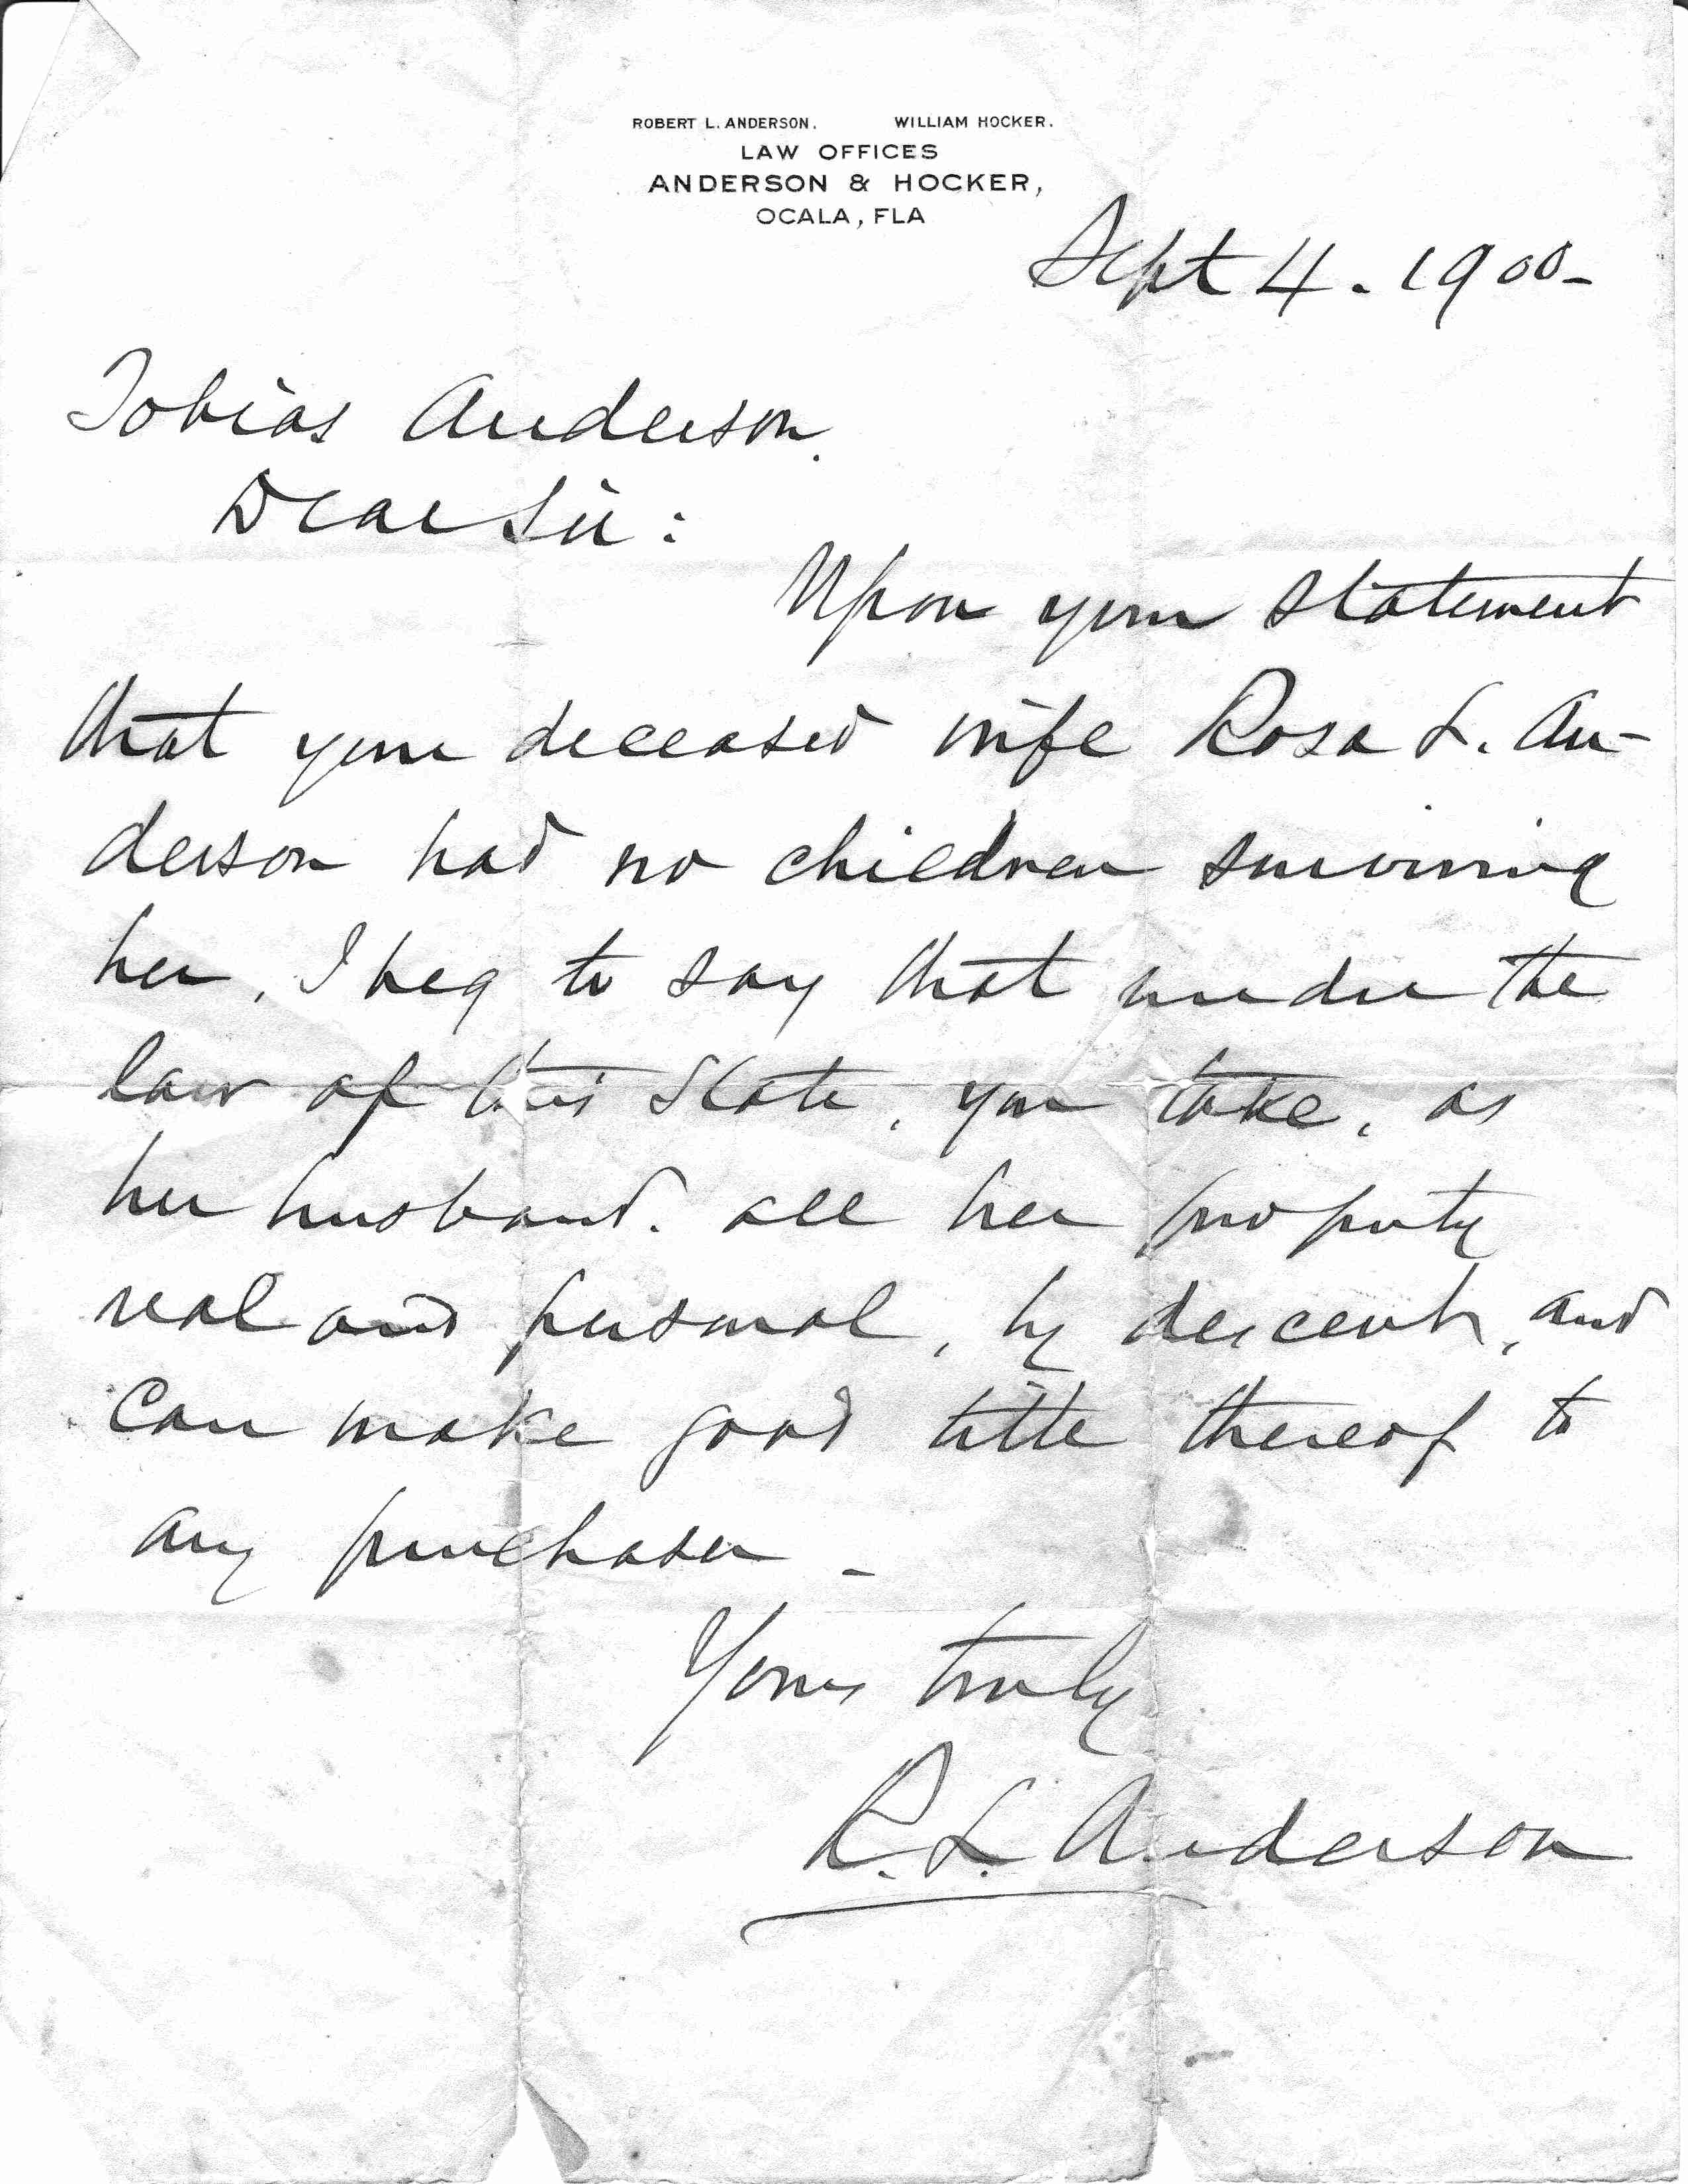 ROBERT L. ANDERSON. WILLIAM HOCKER.
LAW OFFICES
ANDERSON & HOCKER,
OCALA, FLA
Sept 4. 1900-
Tobias Anderson.
Dear Sir:
Upon your statement
that your deceased wife Rosa L. An-
derson had no children surviving
her, I beg to say that under the
law of this State, you take, as
her husband. all her property
real and personal, by descent, and
can make good title thereof to
any purchaser -
Yours truly
R. L. Anderson